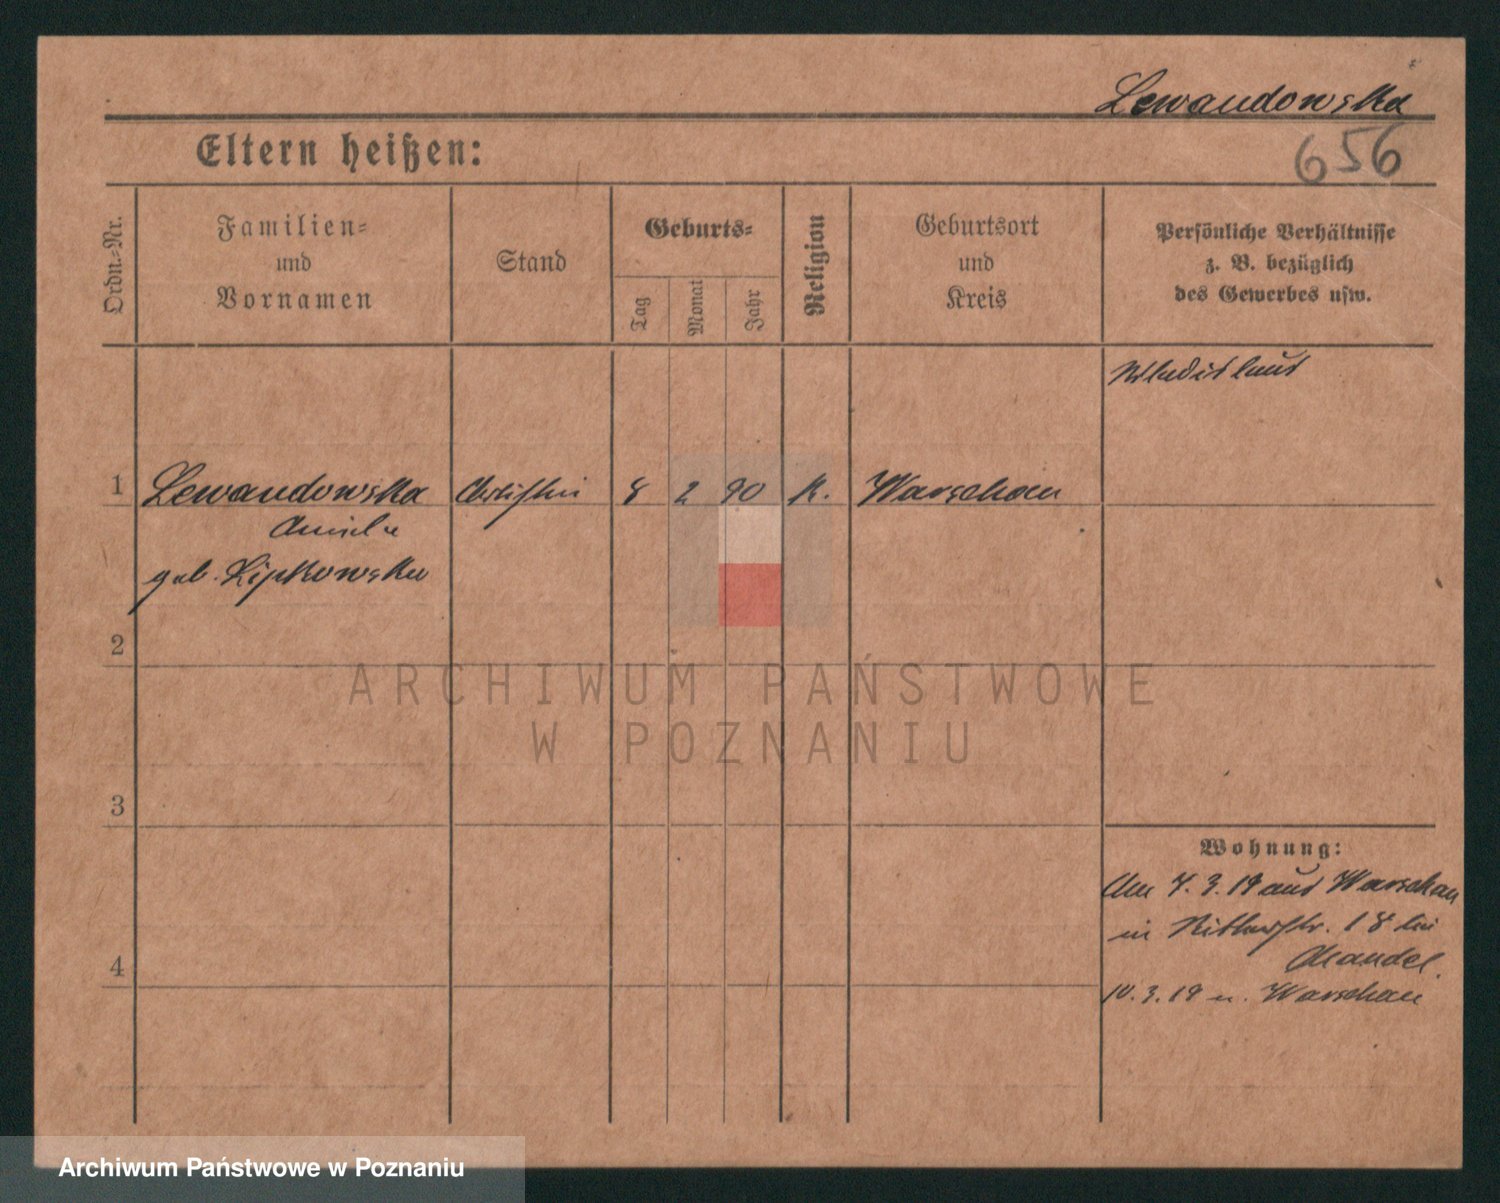 Lewandowska
656
Eltern heißen:
Ordn.-Nr.
Familien-
und
Vornamen
Stand
Geburts-
Tag
Monat
Jahr
Religion
Geburtsort
und
Kreis
Persönliche Verhältnisse
z. B. bezüglich
des Gewerbes usw.
Wladislaus
1 Lewandowska Artistin 8 2 90 K. Warschau
geb. Lipkowska
2
3
4
Wohnung:
Am 7.3.19 aus Warschau
in Ritterstr. 18 bei
Mandel.
10.3.19 n. Warschau
ARCHIWUM PAŃSTWOWE
W POZNANIU
Archiwum Państwowe w Poznaniu